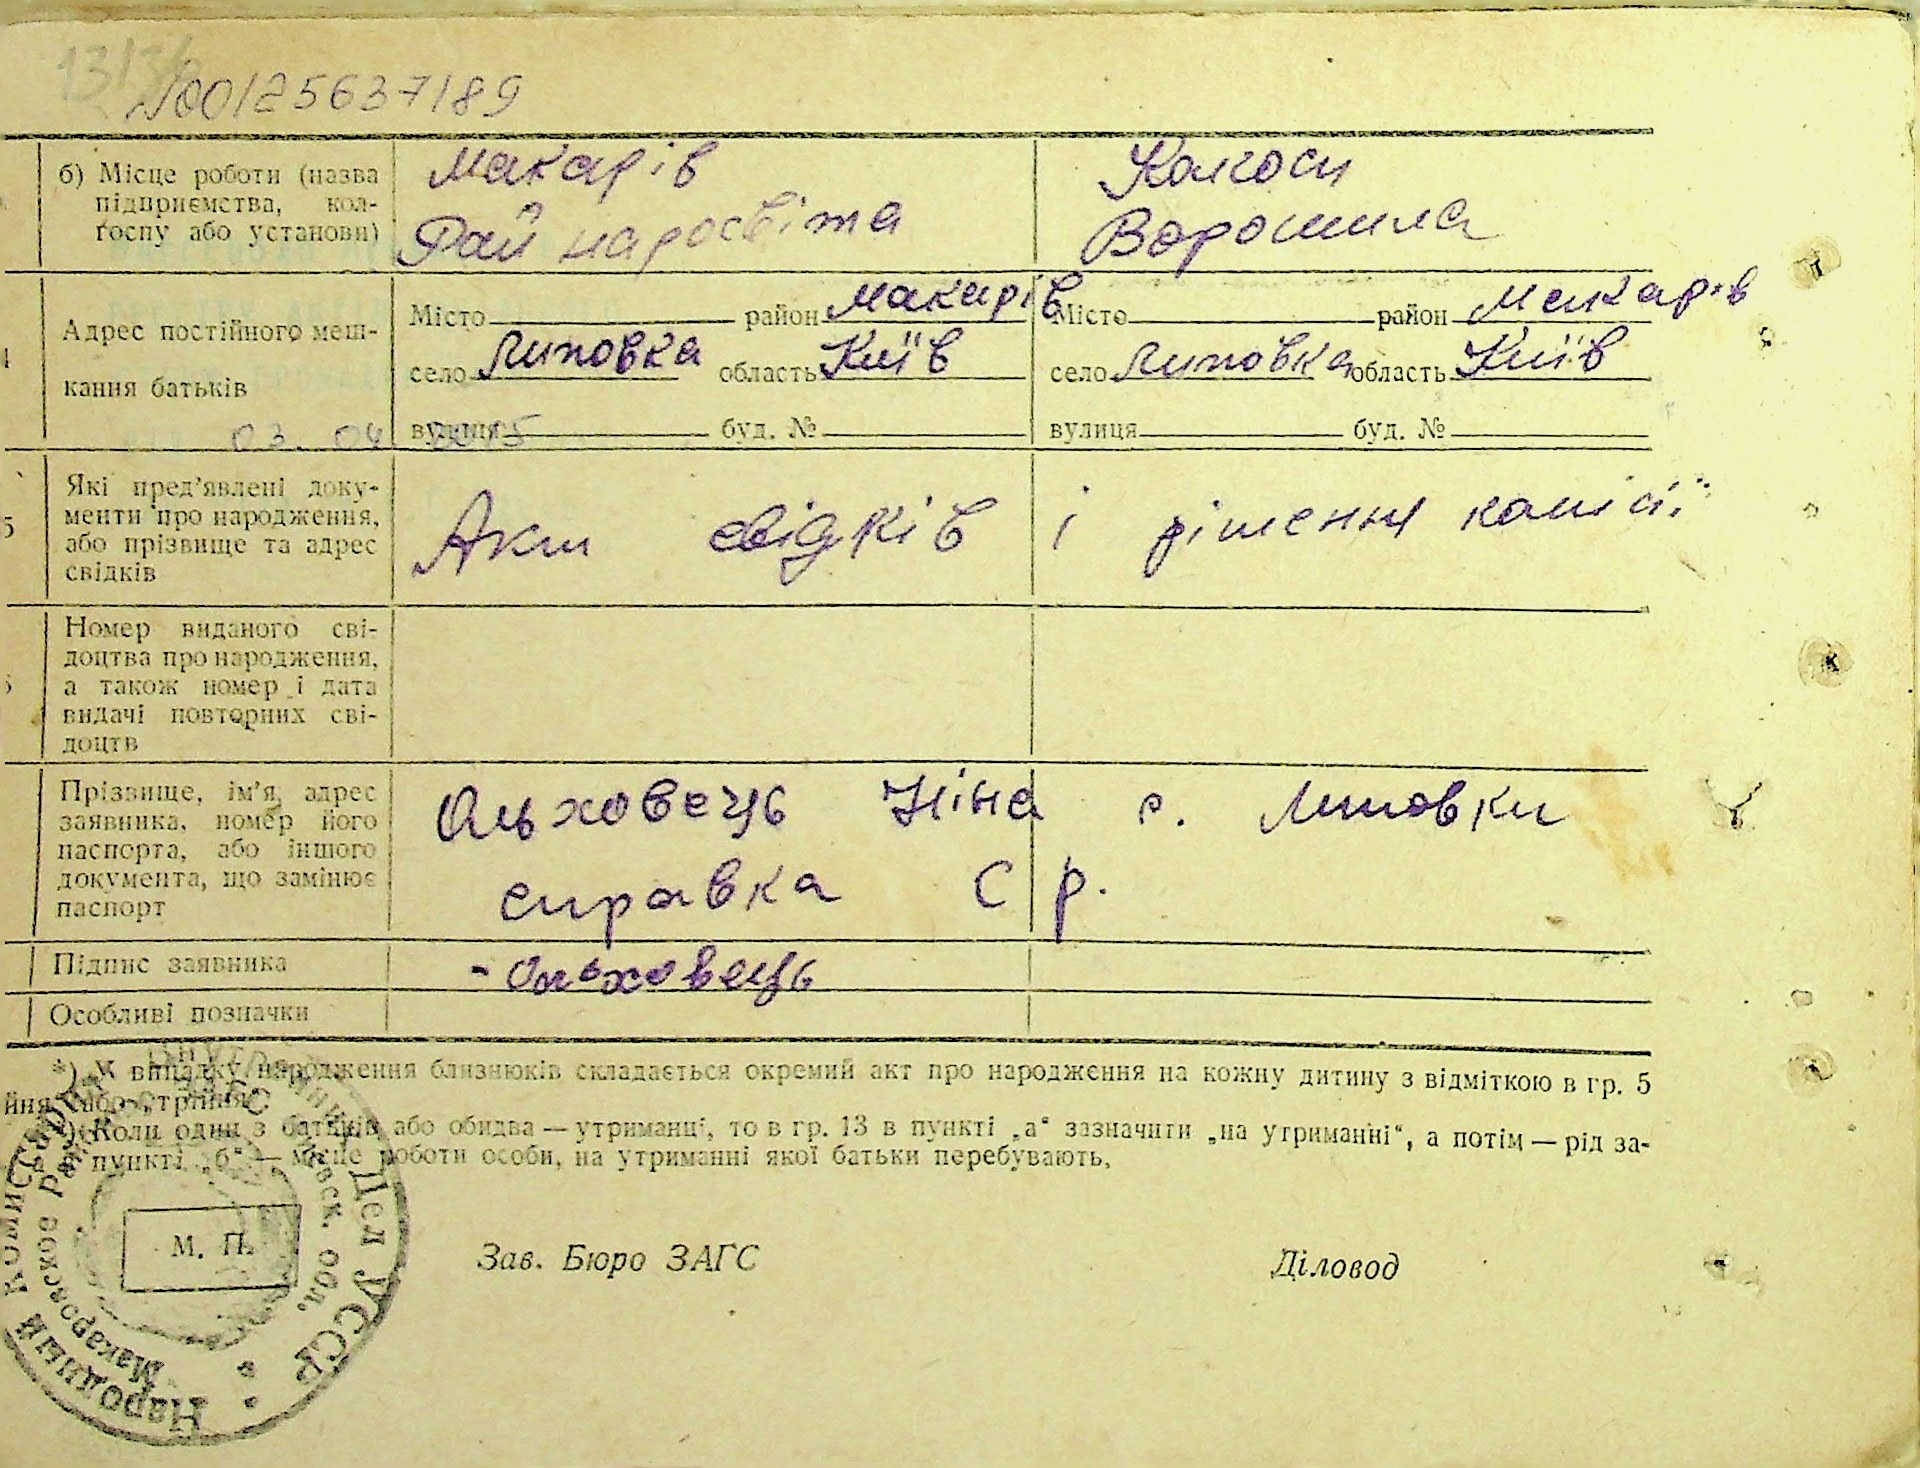 №00125637189
б) Місце роботи (назва
підприємства, кол-
госпу або установи)
Макарів
Рай наросвіта
Колгосп
Ворошила
Адрес постійного меш-
кання батьків
Місто район Макарів
село Липовка область Київ
вулиця буд. №
Місто район Макарів
село Липовка область Київ
вулиця буд. №
03. 04.
Які пред'явлені доку-
менти про народження,
або прізвище та адрес
свідків
Акт свідків і рішення комісії
Номер виданого сві-
доцтва про народження,
а також номер і дата
видачі повторних сві-
доцтв
Прізвище, ім'я, адрес
заявника, номер його
паспорта, або іншого
документа, що замінює
паспорт
Ольховець Ніна с. Липовки
справка С р.
Підпис заявника
- Ольховець
Особливі позначки
*) У випадку народження близнюків складається окремий акт про народження на кожну дитину з відміткою в гр. 5
Коли один з батьків або обидва — утриманці, то в гр. 13 в пункті „а“ зазначити „на утриманні“, а потім — рід за-
пункті „б“ — місце роботи особи, на утриманні якої батьки перебувають.
М. П.
Зав. Бюро ЗАГС
Діловод
Народный Комиссариат Внутренних Дел УССР
Макаровское ЗАГС Киевск. обл.